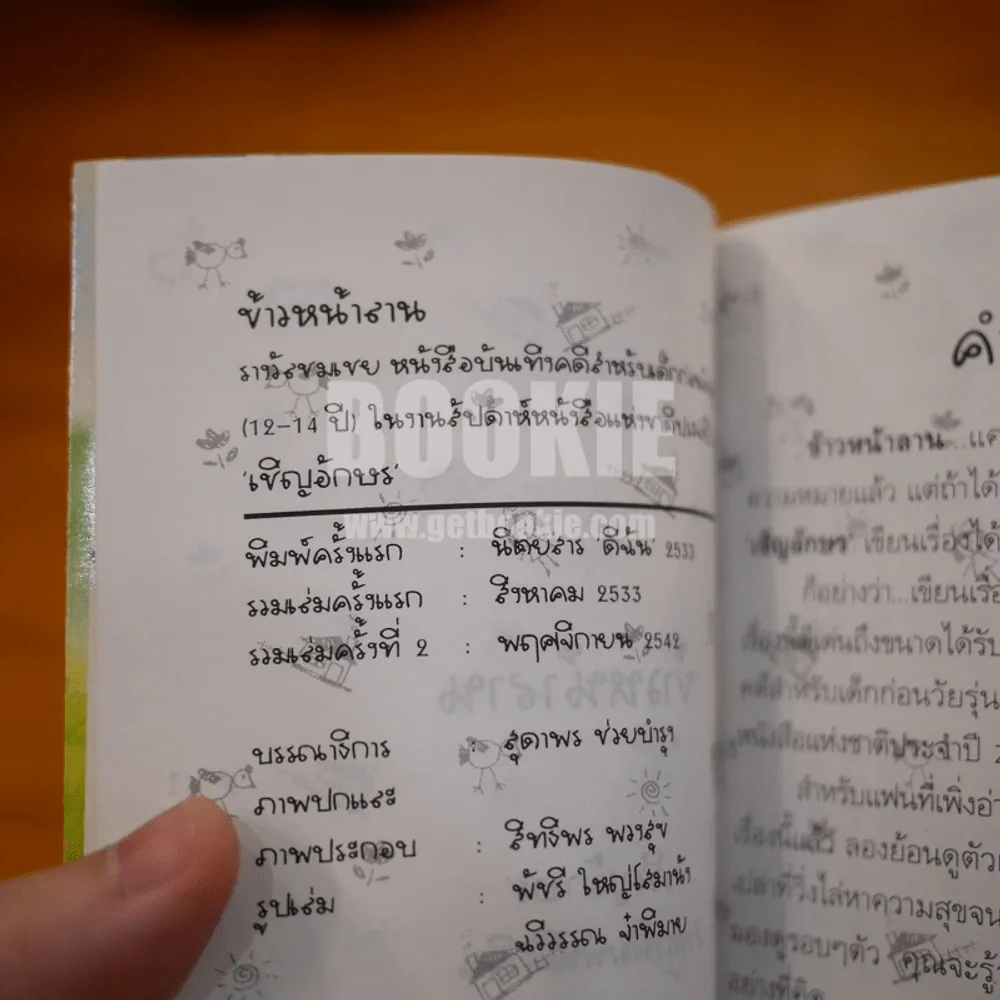 ข้าวหน้าลาน
รางวัลชมเชย หนังสือบันเทิงคดีสำหรับเด็กก่อน
(12-14 ปี) ในงานสัปดาห์หนังสือแห่งชาติ
'เชิญอักษร'
พิมพ์ครั้งแรก : นิตยสาร 'ดิฉัน' 2533
รวมเล่มครั้งแรก : สิงหาคม 2533
รวมเล่มครั้งที่ 2 : พฤศจิกายน 2542
บรรณาธิการ : สุดาพร ช่วยบำรุง
ภาพปกและ
ภาพประกอบ : สิทธิพร พวงสุข
รูปเล่ม : พัชรี ใหญ่โสมานัง
ฉวีวรรณ จำพิมาย
BOOKIE
www.getbookie.com
คำ
ข้าวหน้าลาน...แค
ความหมายแล้ว แต่ถ้าได้
เขียนเรื่องได้
ก็อย่างว่า...เขียนเรื่อ
ถึงขนาดได้รับ
คดีสำหรับเด็กก่อนวัยรุ่น
หนังสือแห่งชาติประจำปี 2
สำหรับแฟนที่เพิ่งอ่า
เรื่องนี้แล้ว ลองย้อนดูตัวเ
เปล่าที่วิ่งไล่หาความสุขจน
ลองดูรอบๆตัว คุณจะรู้
อย่างที่คิด